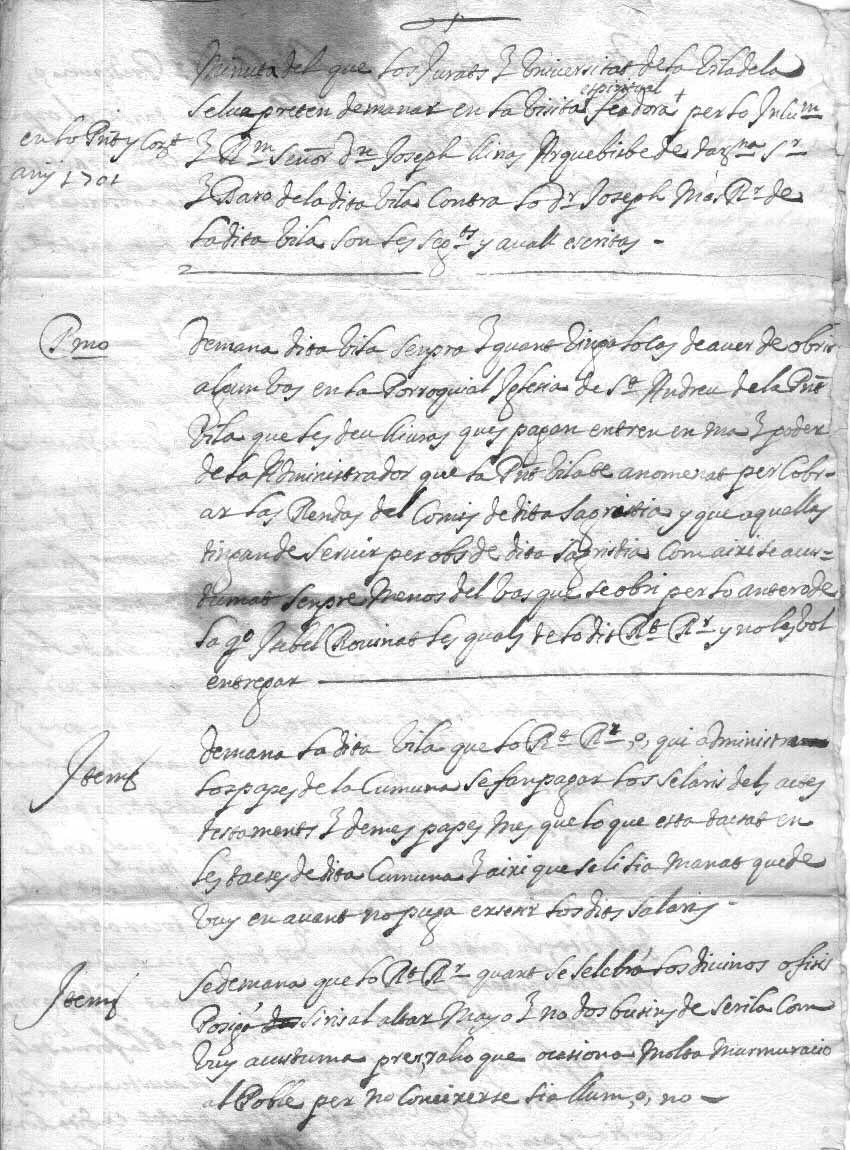 Minuta del que los Jurats y Universitat de la Vila de la
Selva preten demanar en la Visita espiritual feadora + per lo Illm
en lo Pnt y Corrt
any 1701
y Rm Señor Dn Joseph llinas Arquebisbe de Tarrna Sr
y Baro de la dita Vila Contra lo Dr Joseph Mas Rr de
la dita Vila son les segts y avall escritas -
Pmo
demana dita Vila senpra y quant vinga lo cas de aver de obrir
algun vas en la Parroquial Iglesia de St Andreu de la Pnt
Vila que les deu lliuras ques pagan entren en ma y poder
de la Administrador que la Pnt Vila te anomenat per Cobr-
ar las Rendas del Comis de dita Sagristia y que aquellas
tingan de servir per obs de dita Sagristia Com aixi se acus-
tumat senpre Menos del vas que se obri per lo antero de
la qo Isabel Rovinat les quals te lo dit Rt Rr y no les vol
entregar
Item
demana la dita Vila que lo Rt Rr, o, qui administra
los papes de la Cumuna se fan pagar los selaris dels actes
testaments y demes papes Mes que lo que esta tacsat en
les tacses de dita Cumuna y aixi que se li sia Manat que de
vuy en avant no puga exsesir los dits salaris -
Item
se demana que lo Rt Rr quant se selebra los divinos ofisis
Posiga siris al altar Mayo y no dos busins de serilla Com
vuy acustuma pres, raho que ocasiona Molta Murmuracio
al Poble per no Coneixerse si a llum, o, no -